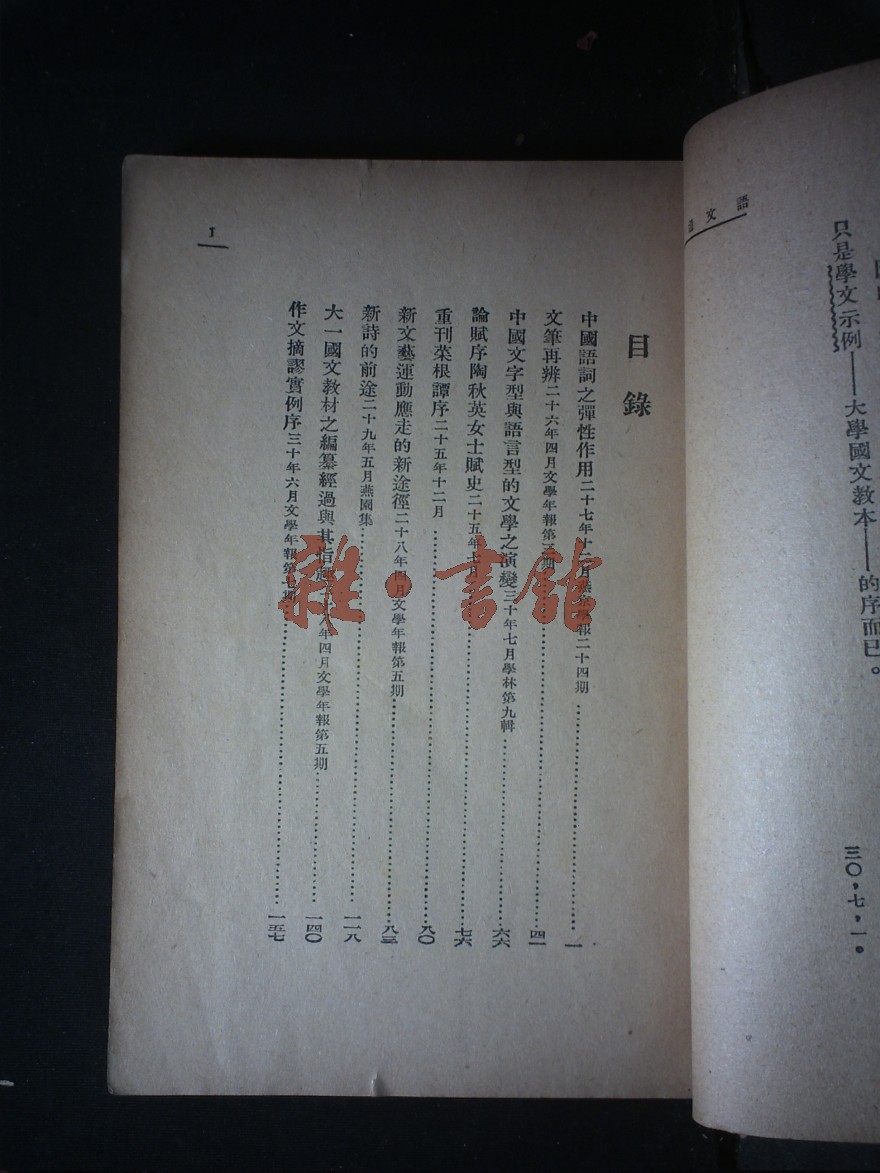 語文通
只是學文示例——大學國文教本——的序而已。
三〇，七，一。
目錄
中國語詞之彈性作用二十七年十二月燕京學報二十四期……一
文筆再辨二十六年四月文學年報第三期……四一
中國文字型與語言型的文學之演變三十年七月學林第九輯……六六
論賦序陶秋英女士賦史二十五年七月……七六
重刊菜根譚序二十五年十二月……八〇
新文藝運動應走的新途徑二十八年四月文學年報第五期……八三
新詩的前途二十九年五月燕園集……一一八
大一國文教材之編纂經過與其旨趣二十八年四月文學年報第五期……一四〇
作文摘謬實例序三十年六月文學年報第七期……一五七
1
雜·書館